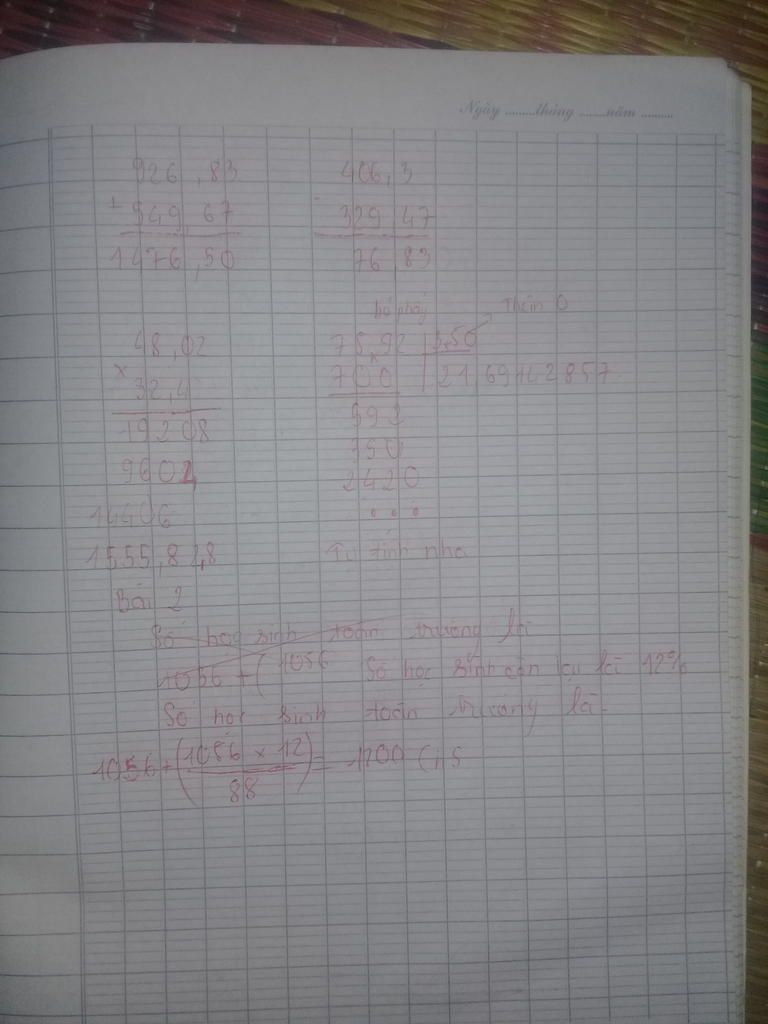 Ngày ........tháng .......năm .........
926,83 406,3
+ 549,67 - 329,47
1476,50 76,83
bỏ phảy Thêm 0
48,02 75,92 3,50
x 32,4 700 21,69142857
19208 592
9604 750
14406 2420
1555,84,8 Tự tính nha
Bài 2
Số học sinh toàn trường là
1056 + ( 1056 Số học sinh còn lại là 12%
Số học sinh toàn trường là
1056 + (1056 x 12 / 88) = 1200